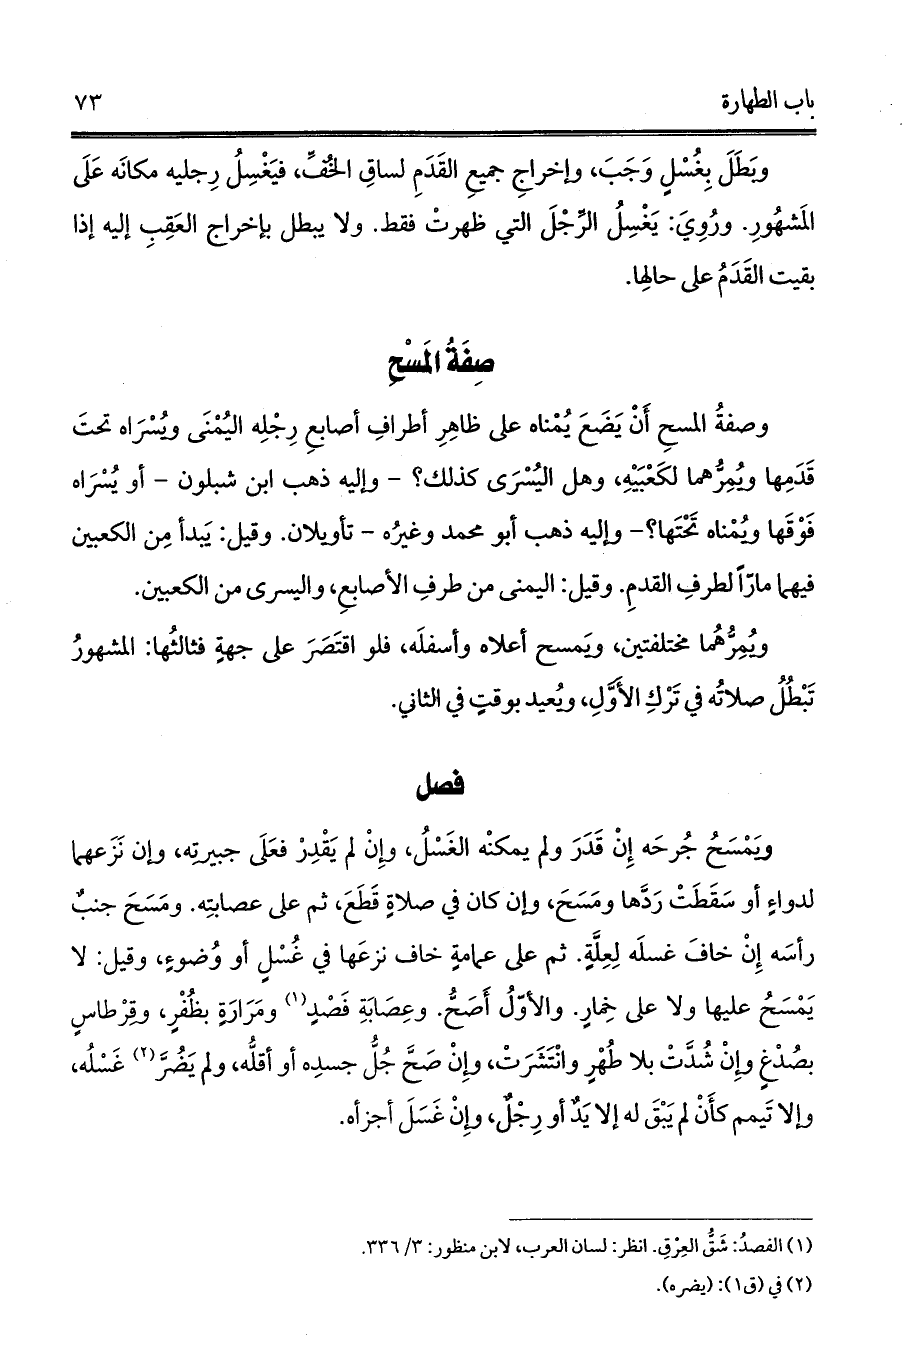 باب الطهارة ٧٣
وبَطَلَ بِغُسْلٍ وَجَبَ، وإخراجِ جميعِ القَدَمِ لساقِ الخُفِّ، فيَغْسِلُ رِجليه مكانَه عَلَى
المَشهُورِ. ورُوِيَ: يَغْسِلُ الرِّجْلَ التي ظهرتْ فقط. ولا يبطل بإخراج العَقِبِ إليه إذا
بقيت القَدَمُ على حالِها.
صِفَةُ المَسْحِ
وصفةُ المسحِ أَنْ يَضَعَ يُمْناه على ظاهِرِ أطرافِ أصابعِ رِجْلِه اليُمْنَى ويُسْرَاه تحتَ
قَدَمِها ويُمِرُّهما لكَعْبَيْهِ، وهل اليُسْرَى كذلك؟ - وإليه ذهب ابن شبلون - أو يُسْرَاه
فَوْقَها ويُمْناه تَحْتَها؟- وإليه ذهب أبو محمد وغيرُه - تأويلان. وقيل: يَبدأ مِن الكعبين
فيهما مارّاً لطرفِ القدمِ. وقيل: اليمنى من طرفِ الأصابعِ، واليسرى من الكعبين.
ويُمِرُّهُما مختلفتين، ويَمسح أعلاه وأسفلَه، فلو اقتَصَرَ على جهةٍ فثالثُها: المشهورُ
تَبْطُلُ صلاتُه في تَرْكِ الأَوَّلِ، ويُعيد بوقتٍ في الثاني.
فصل
ويَمْسَحُ جُرحَه إِنْ قَدَرَ ولم يمكنْه الغَسْلُ، وإِنْ لم يَقْدِرْ فعَلَى جبيرتِه، وإن نَزَعهما
لدواءٍ أو سَقَطَتْ رَدَّها ومَسَحَ، وإن كان في صلاةٍ قَطَعَ، ثم على عصابتِه. ومَسَحَ جنبٌ
رأسَه إِنْ خافَ غسلَه لِعِلَّةٍ. ثم على عمامةٍ خاف نزعَها في غُسْلٍ أو وُضوءٍ، وقيل: لا
يَمْسَحُ عليها ولا على خِمارٍ. والأوّلُ أَصَحُّ. وعِصَابَةِ فَصْدٍ(١) ومَرَارَةٍ بظُفْرٍ، وقِرْطاسٍ
بصُدْغٍ وإِنْ شُدَّتْ بلا طُهْرٍ وانْتَشَرَتْ، وإِنْ صَحَّ جُلُّ جسدِه أو أقلُّه، ولم يَضُرَّ(٢) غَسْلُه،
وإلا تَيمم كأَنْ لم يَبْقَ له إلا يَدٌ أو رِجْلٌ، وإِنْ غَسَلَ أجزأه.
(١) الفصدُ: شَقُّ العِرْقِ. انظر: لسان العرب، لابن منظور: ٣/ ٣٣٦.
(٢) في (ق١): (يضره).